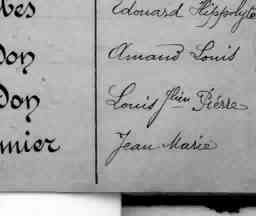 bes Edouard Hippolyte
don Amand Louis
don Louis Jlien Pierre
mier Jean Marie